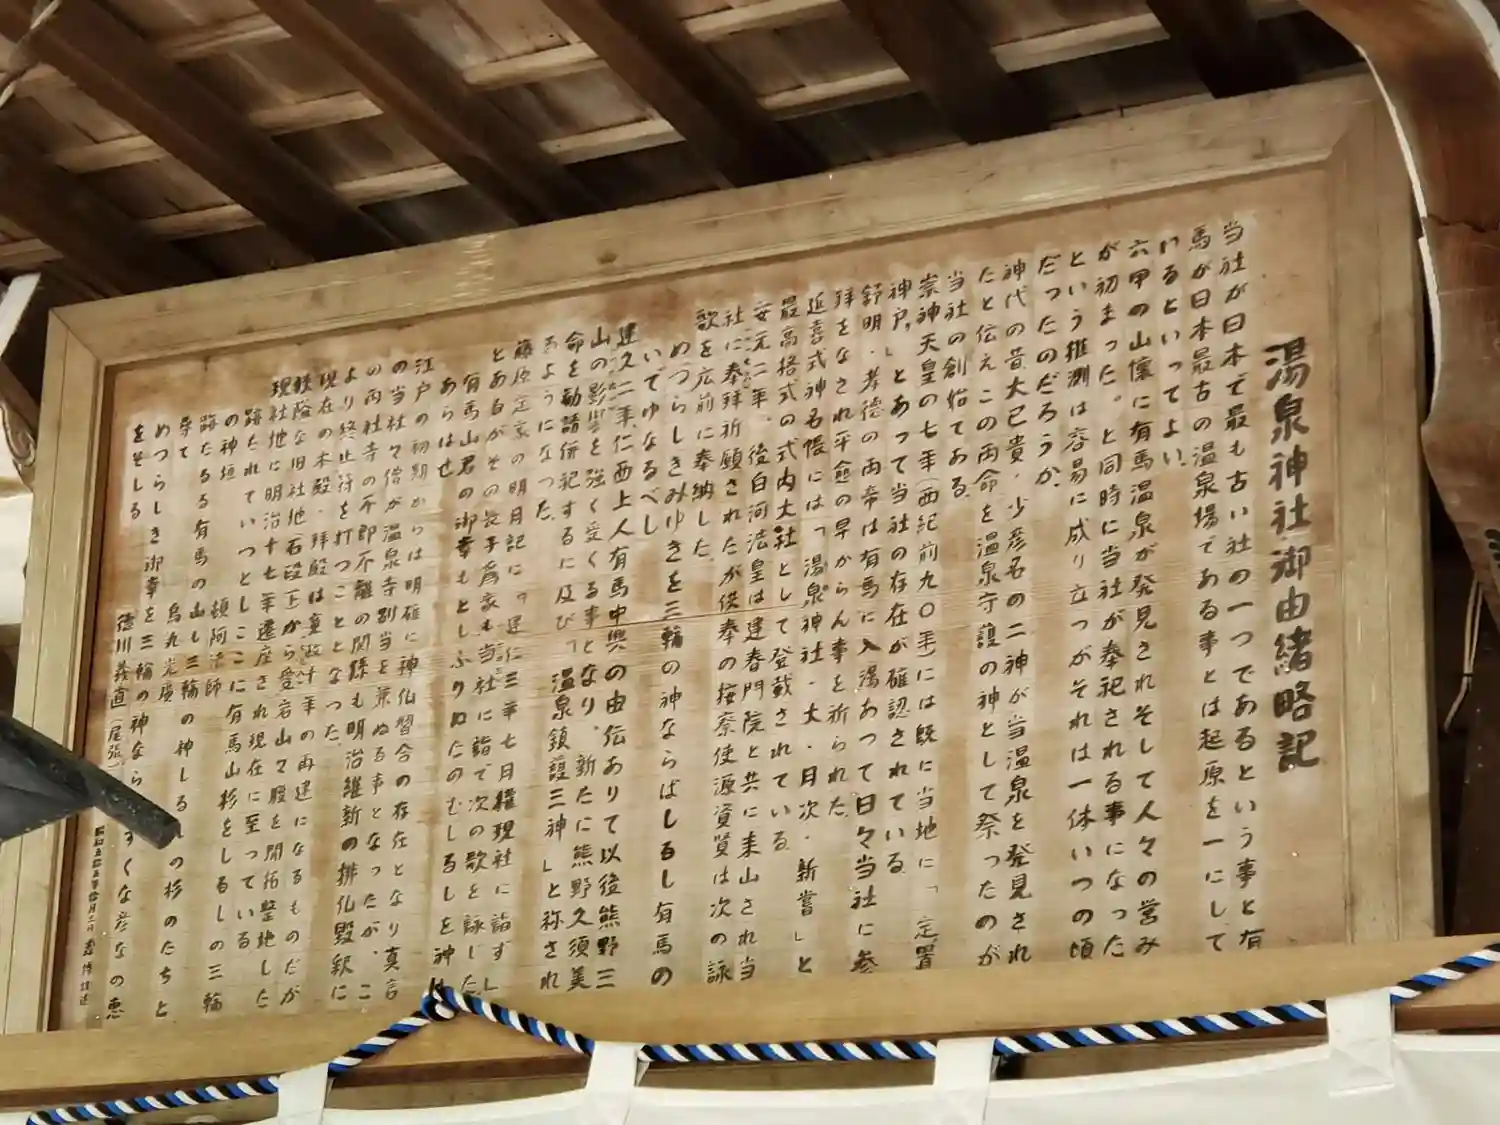 湯泉神社御由緒略記
当社が日本で最も古い社の一つであるという事と有
馬が日本最古の温泉場である事とは起原を一にして
いるといってよい。
六甲の山懐に有馬温泉が発見されそして人々の営み
が初まった。と同時に当社が奉祀される事になった
という推測は容易に成り立つがそれは一体いつの頃
だったのだろうか。
神代の昔大已貴・少彦名の二神が当温泉を発見され
たと伝えこの両命を温泉守護の神として祭ったのが
当社の創始である。
崇神天皇の七年(西紀前九〇年)には既に当地に「定置
神戸」とあって当社の存在が確認されている。
舒明・孝徳の両帝は有馬に入湯あって日々当社に参
拝をなされ平愈の早からん事を祈られた。
延喜式神名帳には「湯泉神社・大・月次・新嘗」と
最高格式の式内大社として登載されている。
安元二年、後白河法皇は建春門院と共に来山され当
社に奉拝祈願されたが供奉の按察使源資賢は次の詠
歌を広前に奉納した。
めづらしきみゆきを三輪の神ならばしるし有馬の
いでゆなるべし
建久二年、仁西上人有馬中興の由伝ありて以後熊野三
山の影響を強く受くる事となり、新たに熊野久須美
命を勧請併祀するに及び「温泉鎮護三神」と称され
るようになった。
藤原定家の明月記に「建仁三年七月権現社に詣ず」
とあるがその長子為家も当社に詣で次の歌を詠じた。
有馬山君の御幸もとしふりぬたのむしるしを神は
あらはせ
江戸の初期からは明確に神仏習合の存在となり真言
の当社々僧が温泉寺別当を兼ぬる事となったが、こ
の両社寺の不即不離の関係も明治維新の排仏毀釈に
より終止符を打つこととなった。
現在の本殿・拝殿は寛政 年の再建になるものだが
険な旧社地石段下から愛宕山々腹を開拓整地した
現社地に明治十七年遷座され現在に至っている。
跡たれていつとしここに有馬山杉をしるしの三輪
の神垣 頓阿法師
跡たるる有馬の山し三輪の神しるしの杉のたちと
等て 烏丸光廣
めつらしき御幸を三輪の神なら すくな彦なの恵
をそしる 徳川義直(尾張